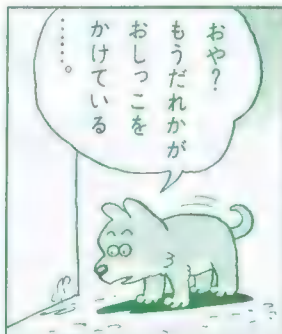 おや？
もうだれかが
おしっこを
かけている
……。